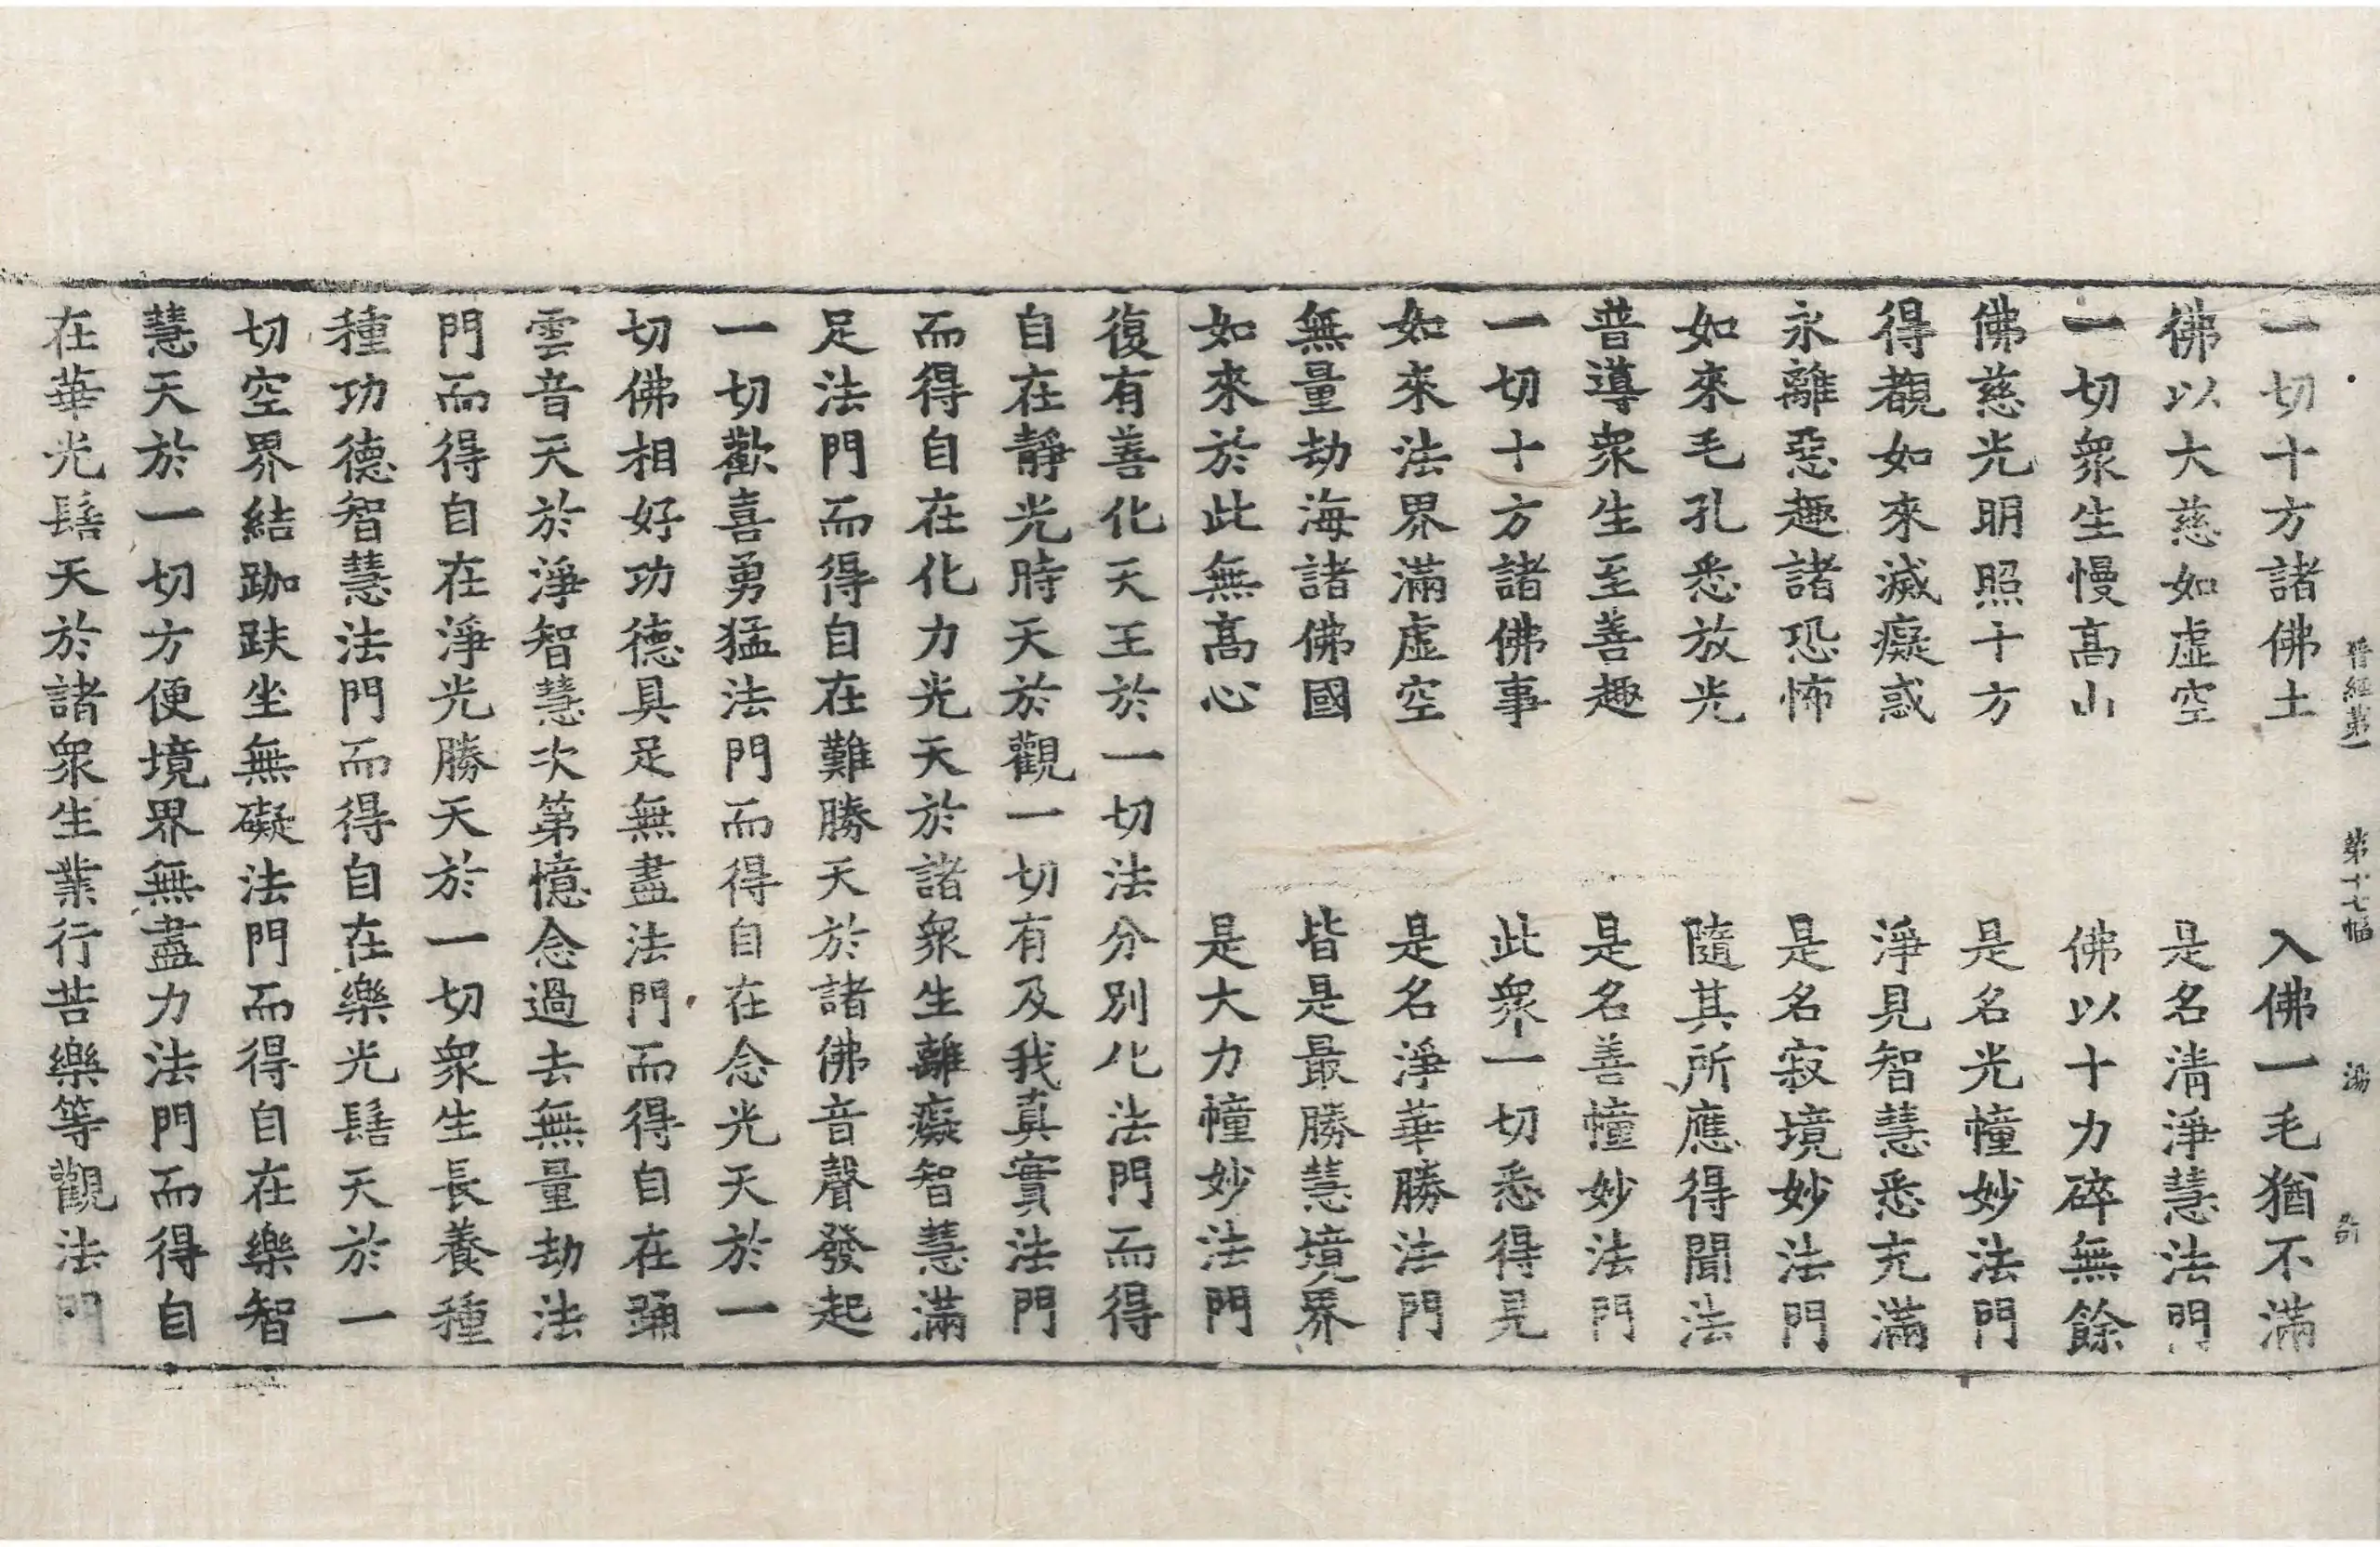 晉經第一 第十七幅 湯
一切十方諸佛土 入佛一毛猶不滿
佛以大慈如虛空 是名淸淨慧法門
一切衆生慢髙山 佛以十力碎無餘
佛慈光明照十方 是名光幢妙法門
得覩如來滅癡惑 淨見智慧悉充滿
永離惡趣諸恐怖 是名寂境妙法門
如來毛孔悉放光 隨其所應得聞法
普導衆生至善趣 是名善幢妙法門
一切十方諸佛事 此衆一切悉得見
如來法界滿虛空 是名淨華勝法門
無量劫海諸佛國 皆是最勝慧境界
如來於此無髙心 是大力幢妙法門
復有善化天王於一切法分別化法門而得
自在靜光時天於觀一切有及我真實法門
而得自在化力光天於諸衆生離癡智慧滿
足法門而得自在難勝天於諸佛音聲發起
一切歡喜勇猛法門而得自在念光天於一
切佛相好功德具足無盡法門而得自在踊
雲音天於淨智慧次第憶念過去無量劫法
門而得自在淨光勝天於一切衆生長養種
種功德智慧法門而得自在樂光髻天於一
切空界結跏趺坐無礙法門而得自在樂智
慧天於一切方便境界無盡力法門而得自
在華光髻天於諸衆生業行苦樂等觀法門